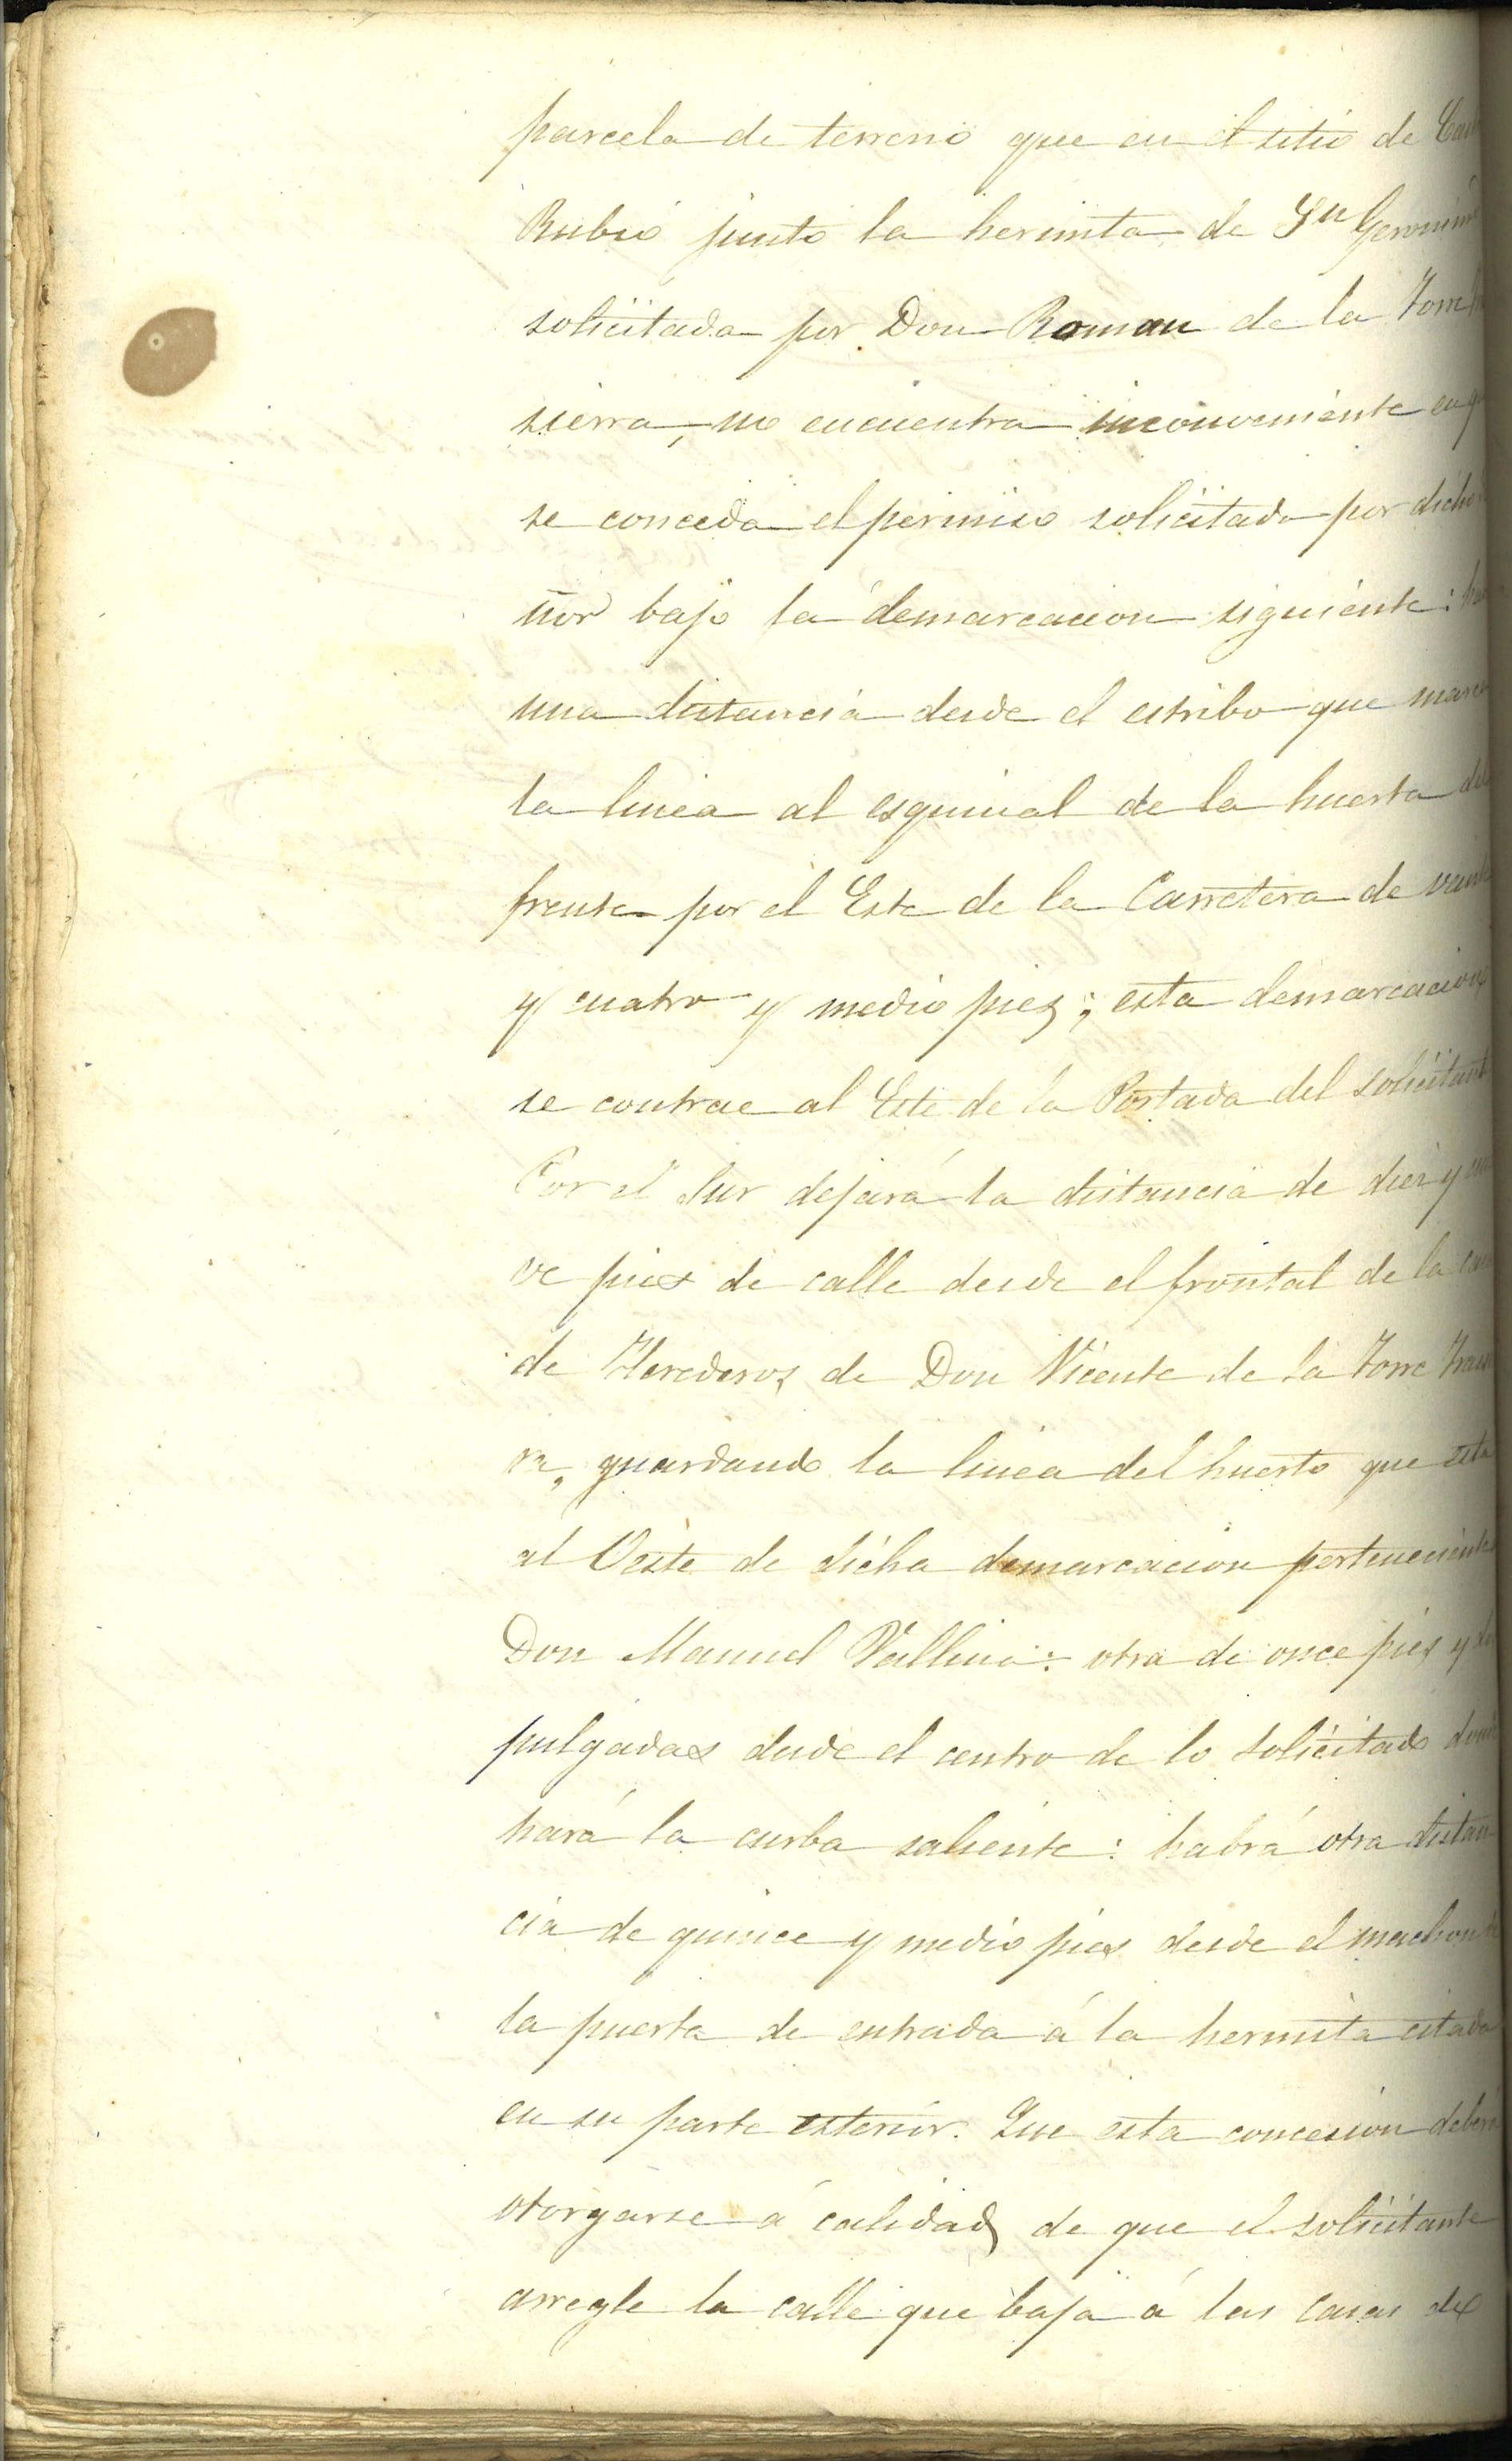 parcela de terreno que en el sitio de
Rubió junto la hermita de Sn Geronimo
solicitada por Don Roman de la Torre
sierra, no encuentra inconveniente en
se conceda el permiso solicitado por dicho
ñor bajo la demarcacion siguiente:
una distancia desde el estribo que marca
la linea al esquinal de la huerta del
frente por el Este de la Carretera de veinte
y cuatro y medio piez; esta demarcacion
se contrae al Este de la Portada del solicitante
Por el Sur dejará la distancia de diez y
ve pies de calle desde el frontal de la casa
de Herederos de Don Vicente de la Torre
ra, guardando la linea del huerto que esta
al Oeste de dicha demarcacion perteneciente
Don Manuel Vallina: otra de once pies y
pulgadas desde el centro de lo solicitado donde
hará la curba saliente: habrá otra distan
cia de quince y medio pies desde el machon de
la puerta de entrada á la hermita citada
en su parte esterior. Que esta concesion deberá
otorgarse á calidad de que el solicitante
arregle la calle que baja á las casas de